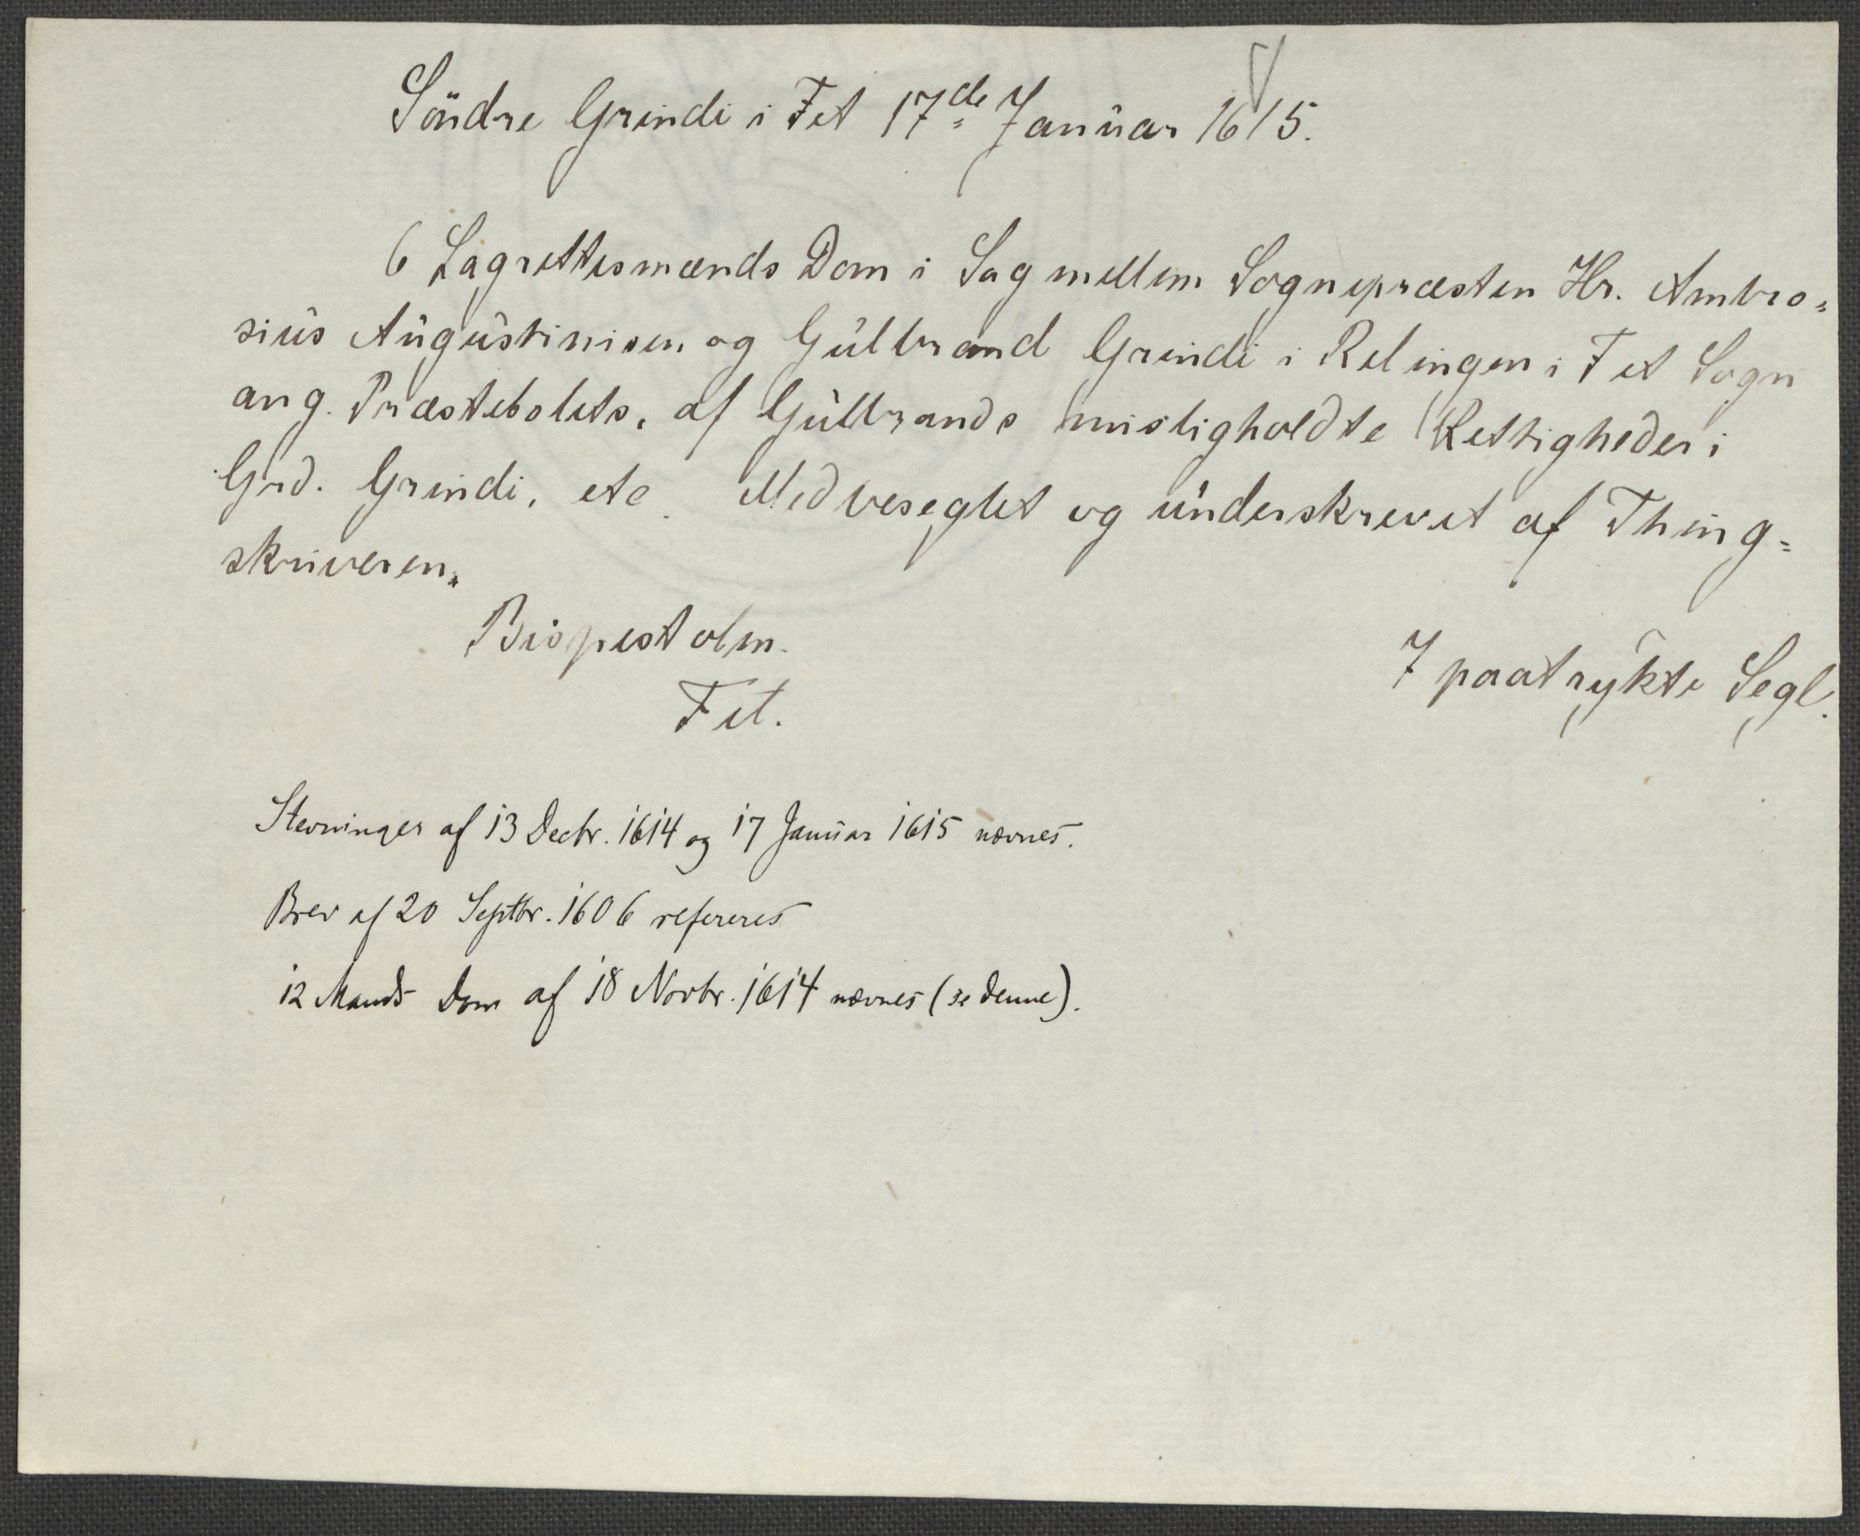 Söndre Grindi i Fet 17de Januar 1615.
6 Lagrettesmænds Dom i Sag mellem Sognepræsten Hr. Ambro=
sius Augustinisen og Gulbrand Grindi i Relingen i Fet Sogn
ang. Præstebolets, af Gulbrands misligholdte Rettigheder i
Grd. Grindi, etc. Medbeseglet og underskrevet af Thing=
skriveren.
Bispestolm.
7 paatrykte Segl.
Fet.
Stevninger af 13 Decbr. 1614 og 17 Januar 1615 nævnes.
Brev af 20 Septbr. 1606 refereres
12 Mands Dom af 18 Novbr. 1614 nævnes (se denne).